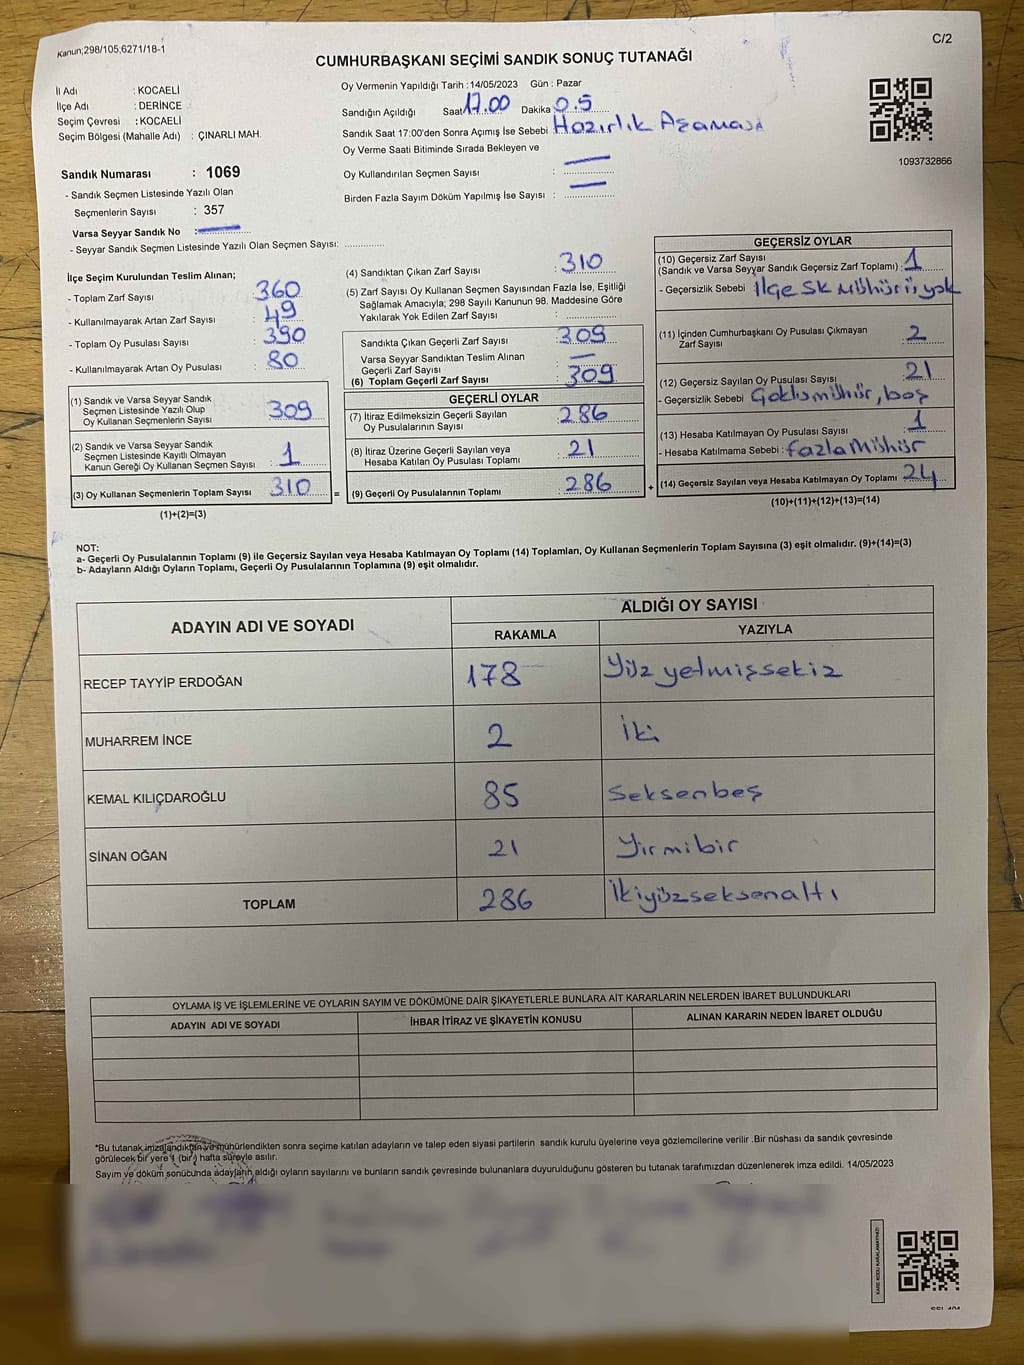 Kanun;298/105,6271/18-1
C/2
CUMHURBAŞKANI SEÇİMİ SANDIK SONUÇ TUTANAĞI
İl Adı : KOCAELİ
İlçe Adı : DERİNCE
Seçim Çevresi : KOCAELİ
Seçim Bölgesi (Mahalle Adı) : ÇINARLI MAH.
Oy Vermenin Yapıldığı Tarih :14/05/2023 Gün : Pazar
Sandığın Açıldığı Saat 17.00 Dakika 0.5
Sandık Saat 17:00'den Sonra Açımış İse Sebebi : Hazırlık Aşaması
Oy Verme Saati Bitiminde Sırada Bekleyen ve
Oy Kullandırılan Seçmen Sayısı : —
Birden Fazla Sayım Döküm Yapılmış İse Sayısı : —
1093732866
Sandık Numarası : 1069
- Sandık Seçmen Listesinde Yazılı Olan
Seçmenlerin Sayısı : 357
Varsa Seyyar Sandık No : —
- Seyyar Sandık Seçmen Listesinde Yazılı Olan Seçmen Sayısı: ..............
İlçe Seçim Kurulundan Teslim Alınan;
- Toplam Zarf Sayısı : 360
- Kullanılmayarak Artan Zarf Sayısı : 49
- Toplam Oy Pusulası Sayısı : 390
- Kullanılmayarak Artan Oy Pusulası : 80
(1) Sandık ve Varsa Seyyar Sandık
Seçmen Listesinde Yazılı Olup
Oy Kullanan Seçmenlerin Sayısı : 309
(2) Sandık ve Varsa Seyyar Sandık
Seçmen Listesinde Kayıtlı Olmayan
Kanun Gereği Oy Kullanan Seçmen Sayısı : 1
(3) Oy Kullanan Seçmenlerin Toplam Sayısı : 310
(1)+(2)=(3)
=
(4) Sandıktan Çıkan Zarf Sayısı : 310
(5) Zarf Sayısı Oy Kullanan Seçmen Sayısından Fazla İse, Eşitliği
Sağlamak Amacıyla; 298 Sayılı Kanunun 98. Maddesine Göre
Yakılarak Yok Edilen Zarf Sayısı : ..............
Sandıkta Çıkan Geçerli Zarf Sayısı : 309
Varsa Seyyar Sandıktan Teslim Alınan
Geçerli Zarf Sayısı : —
(6) Toplam Geçerli Zarf Sayısı : 309
GEÇERLİ OYLAR
(7) İtiraz Edilmeksizin Geçerli Sayılan
Oy Pusulalarının Sayısı : 286
(8) İtiraz Üzerine Geçerli Sayılan veya
Hesaba Katılan Oy Pusulası Toplamı : 21
(9) Geçerli Oy Pusulalarının Toplamı : 286
+
GEÇERSİZ OYLAR
(10) Geçersiz Zarf Sayısı
(Sandık ve Varsa Seyyar Sandık Geçersiz Zarf Toplamı) : 1
- Geçersizlik Sebebi : İlçe SK Mührü yok
(11) İçinden Cumhurbaşkanı Oy Pusulası Çıkmayan
Zarf Sayısı : 2
(12) Geçersiz Sayılan Oy Pusulası Sayısı : 21
- Geçersizlik Sebebi : boş
(13) Hesaba Katılmayan Oy Pusulası Sayısı : 1
- Hesaba Katılmama Sebebi : fazla Mühür
(14) Geçersiz Sayılan veya Hesaba Katılmayan Oy Toplamı : 24
(10)+(11)+(12)+(13)=(14)
NOT:
a- Geçerli Oy Pusulalarının Toplamı (9) ile Geçersiz Sayılan veya Hesaba Katılmayan Oy Toplamı (14) Toplamları, Oy Kullanan Seçmenlerin Toplam Sayısına (3) eşit olmalıdır. (9)+(14)=(3)
b- Adayların Aldığı Oyların Toplamı, Geçerli Oy Pusulalarının Toplamına (9) eşit olmalıdır.
ADAYIN ADI VE SOYADI
ALDIĞI OY SAYISI
RAKAMLA YAZIYLA
RECEP TAYYİP ERDOĞAN 178 Yüz yetmişsekiz
MUHARREM İNCE 2 İki
KEMAL KILIÇDAROĞLU 85 Seksenbeş
SİNAN OĞAN 21 Yirmibir
TOPLAM 286 İkiyüzseksenaltı
OYLAMA İŞ VE İŞLEMLERİNE VE OYLARIN SAYIM VE DÖKÜMÜNE DAİR ŞİKAYETLERLE BUNLARA AİT KARARLARIN NELERDEN İBARET BULUNDUKLARI
ADAYIN ADI VE SOYADI İHBAR İTİRAZ VE ŞİKAYETİN KONUSU ALINAN KARARIN NEDEN İBARET OLDUĞU
*Bu tutanak imzalandıktan ve mühürlendikten sonra seçime katılan adayların ve talep eden siyasi partilerin sandık kurulu üyelerine veya gözlemcilerine verilir .Bir nüshası da sandık çevresinde
görülecek bir yere 1 (bir ) hafta süreyle asılır.
Sayım ve döküm sonucunda adayların aldığı oyların sayılarını ve bunların sandık çevresinde bulunanlara duyurulduğunu gösteren bu tutanak tarafımızdan düzenlenerek imza edildi. 14/05/2023
KARE KODU KARALAMAYINIZ!